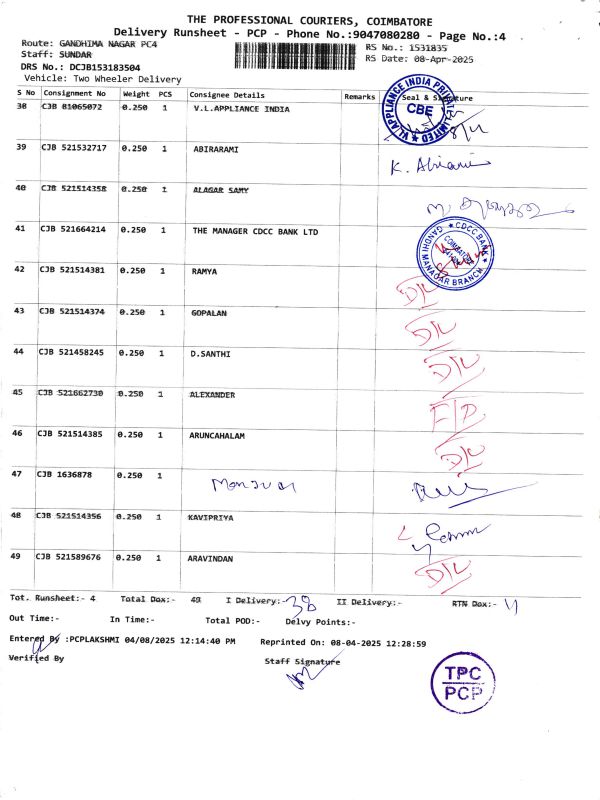 THE PROFESSIONAL COURIERS, COIMBATORE
Delivery Runsheet - PCP - Phone No.:9047080280 - Page No.:4
Route: GANDHIMA NAGAR PC4
RS No.: 1531835
Staff: SUNDAR
RS Date: 08-Apr-2025
DRS No.: DCJB153183504
Vehicle: Two Wheeler Delivery
S No Consignment No Weight PCS Consignee Details Remarks Seal & Signature
38 CJB 81065072 0.250 1 V.L.APPLIANCE INDIA
VL APPLIANCE INDIA PRIVATE LIMITED
CBE
39 CJB 521532717 0.250 1 ABIRARAMI
K. Abirami
40 CJB 521514358 0.250 1 ALAGAR SAMY
41 CJB 521664214 0.250 1 THE MANAGER CDCC BANK LTD
CDCC BANK
GANDHI MANAGAR BRANCH
42 CJB 521514381 0.250 1 RAMYA D/L
43 CJB 521514374 0.250 1 GOPALAN D/L
44 CJB 521458245 0.250 1 D.SANTHI D/L
45 CJB 521662730 0.250 1 ALEXANDER F/D
46 CJB 521514385 0.250 1 ARUNCAHALAM D/L
47 CJB 1636878 0.250 1
48 CJB 521514356 0.250 1 KAVIPRIYA
49 CJB 521589676 0.250 1 ARAVINDAN D/L
Tot. Runsheet:- 4 Total Dox:- 49 I Delivery:- 38 II Delivery:- RTN Dox:- 11
Out Time:- In Time:- Total POD:- Delvy Points:-
Entered By :PCPLAKSHMI 04/08/2025 12:14:40 PM Reprinted On: 08-04-2025 12:28:59
Verified By Staff Signature
TPC
PCP